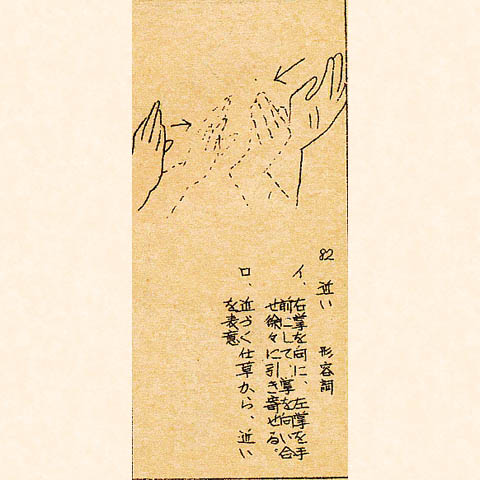 82 近い 形容詞
イ、右掌を向に、左掌を手
前にして、掌を向い合
せ徐々に引き寄せる。
ロ、近づく仕草から、近い
を表意